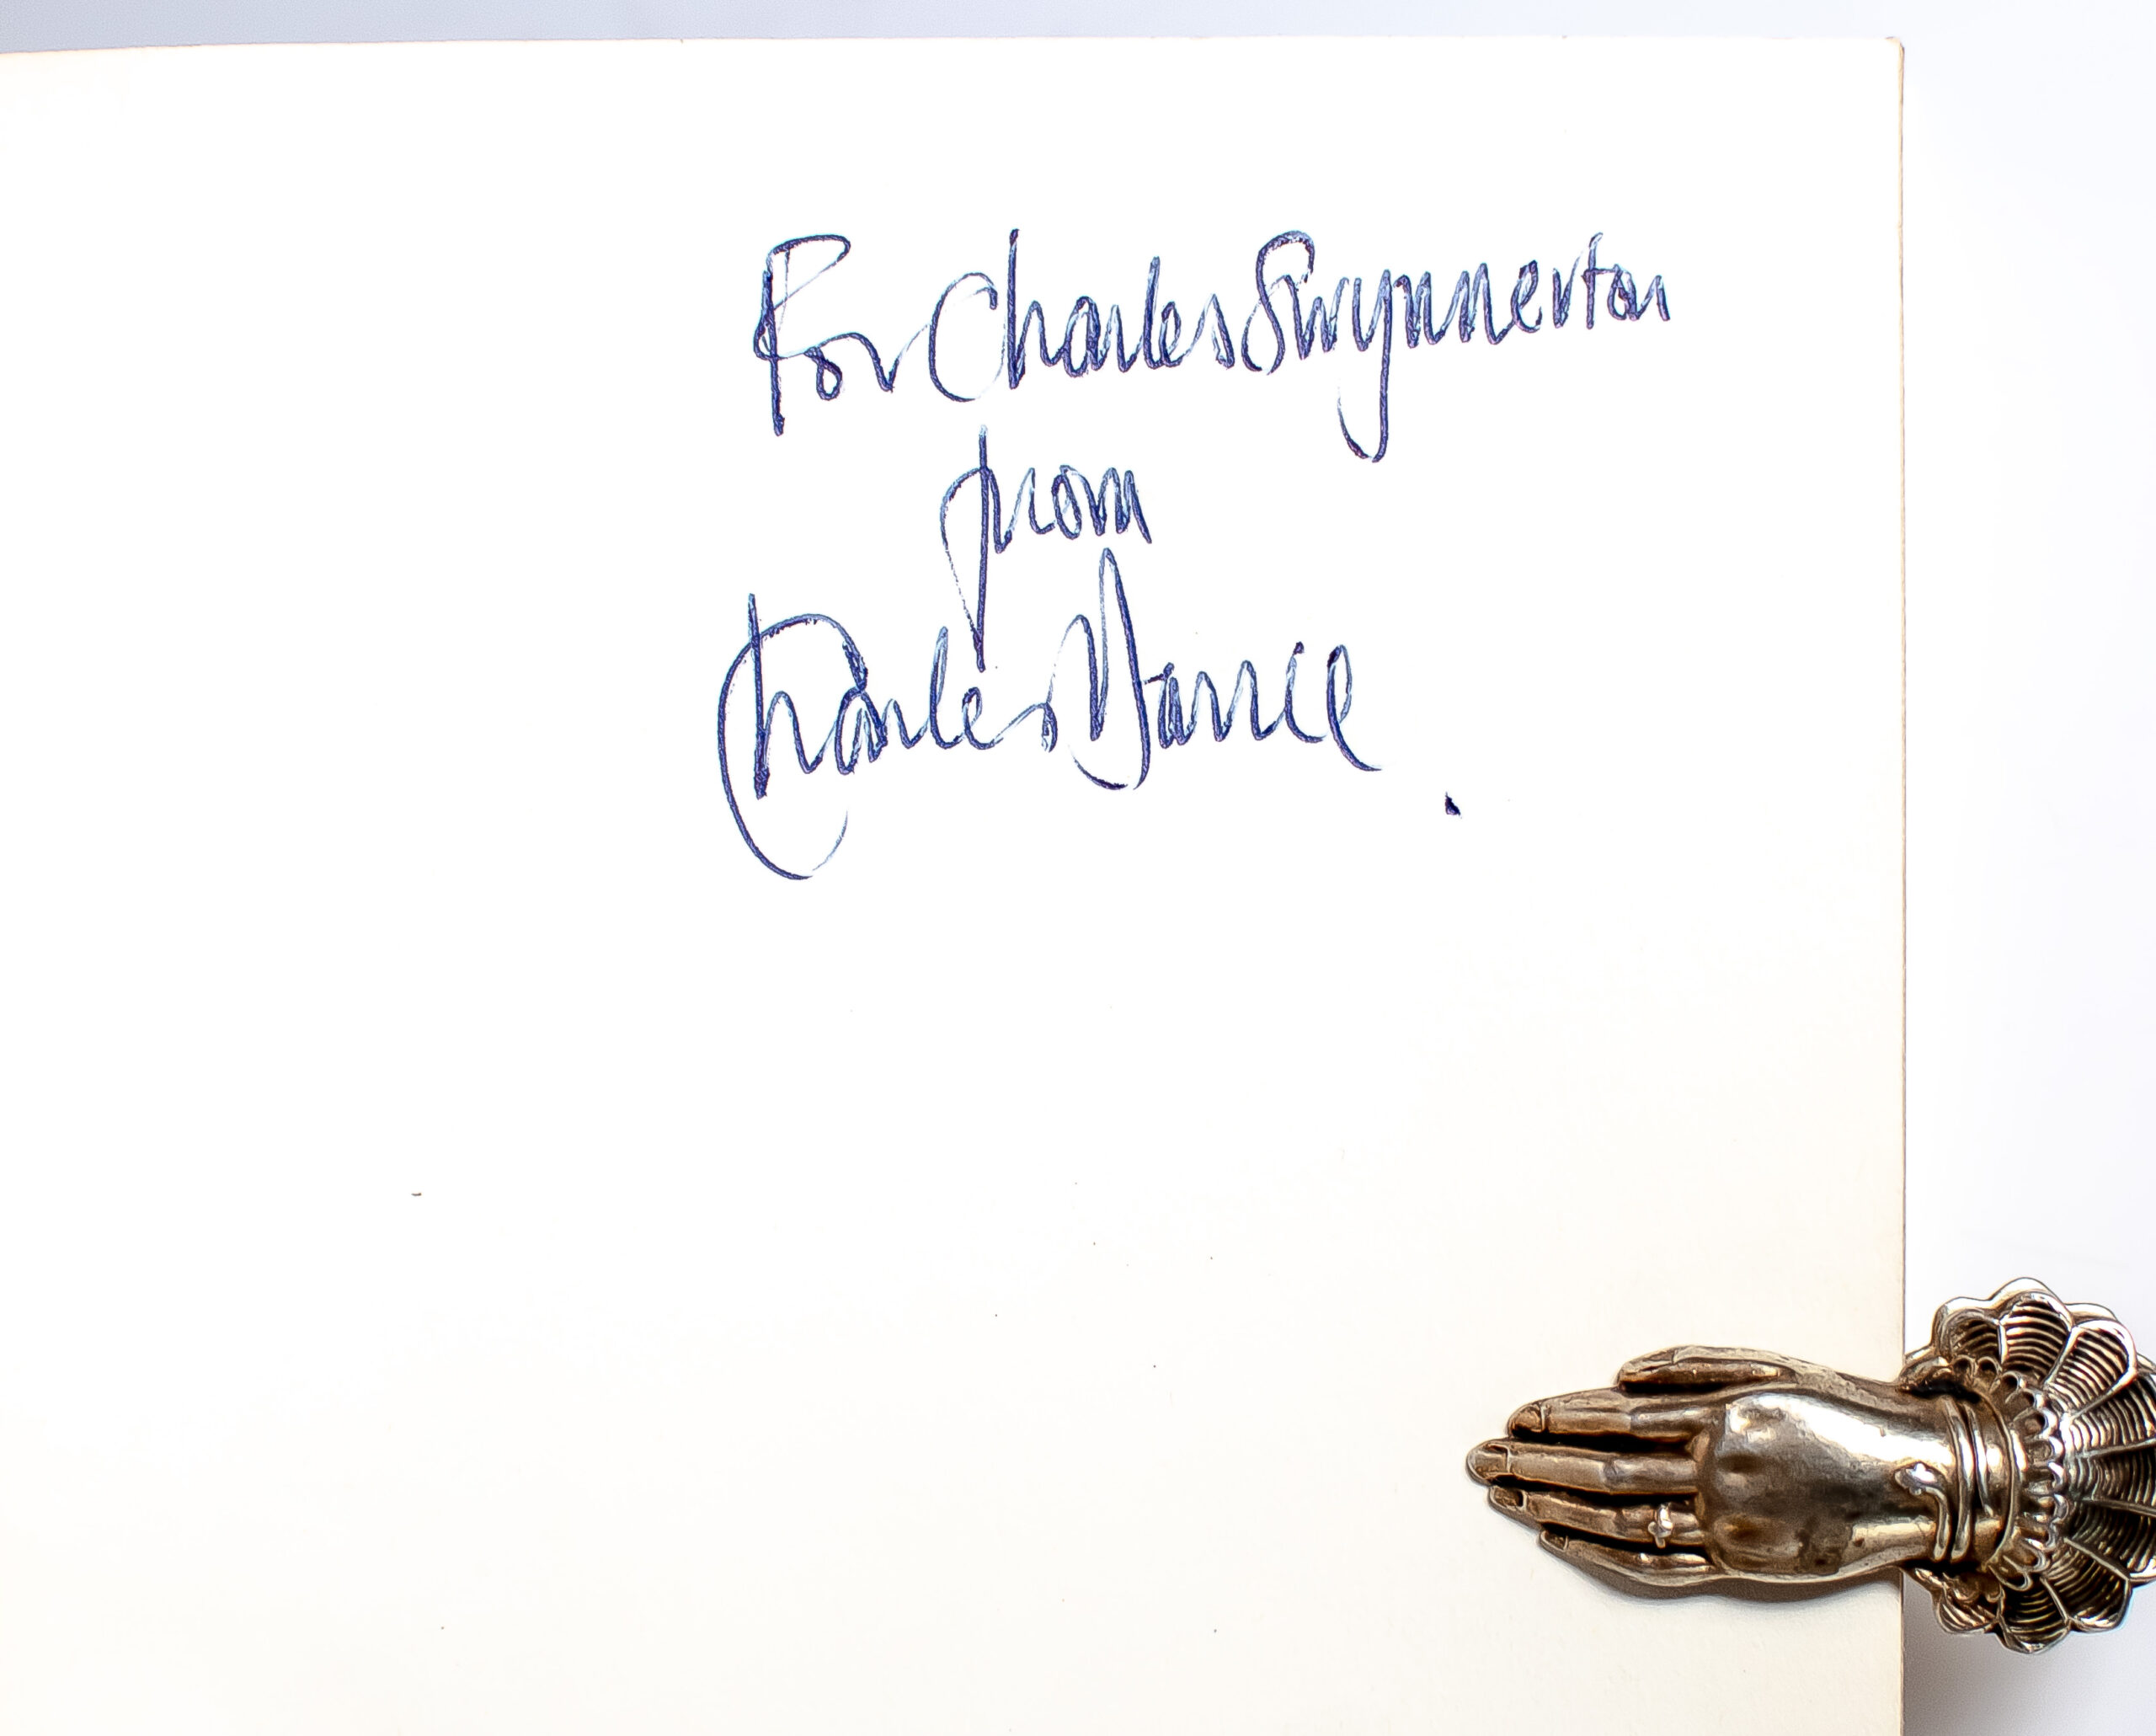 For Charles Swynnerton
from
Charles Dance.